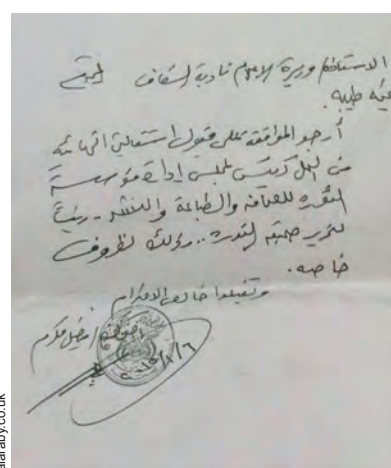 الاستاذة وزيرة الاعلام نادية السقاف المحترمة
تحية طيبه.
أرجو الموافقه على قبول استقالتي النهائيه
من العمل كرئيس لمجلس إدارة مؤسسة
الثوره للصحافه والطباعة والنشر - رئيساً
لتحرير صحيفه الثوره.. وذلك لظروف
خاصه.
وتقبلوا خالص الاحترام
فيصل مكرم
alaraby.co.uk